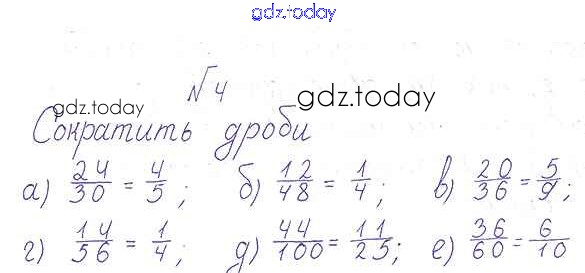 gdz.today
√ 4
gdz.today
gdz.today
Сократить дроби
а) 24/30 = 4/5; б) 12/48 = 1/4; в) 20/36 = 5/9;
г) 14/56 = 1/4; д) 44/100 = 11/25; е) 36/60 = 6/10